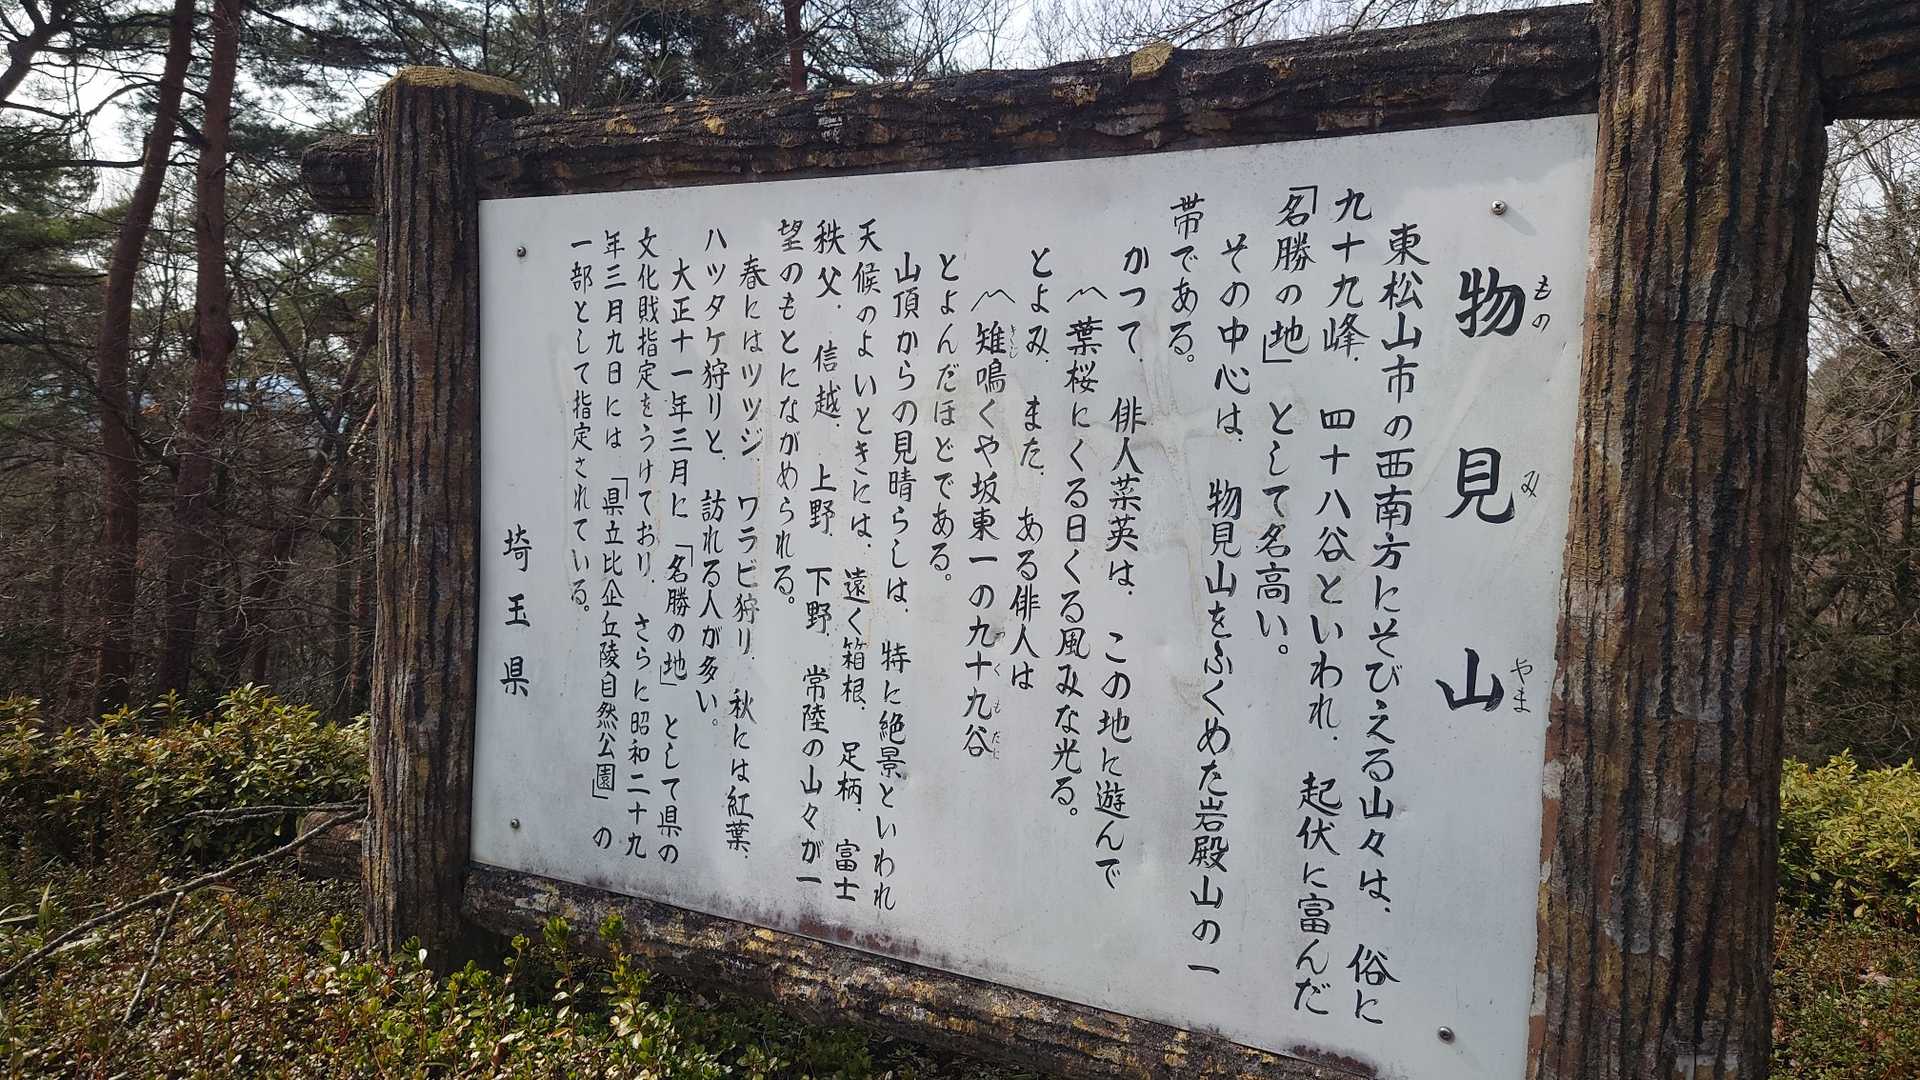 物見山
もの み やま
東松山市の西南方にそびえる山々は、俗に
九十九峰、四十八谷といわれ、起伏に富んだ
「名勝の地」として名高い。
その中心は、物見山をふくめた岩殿山の一
帯である。
かつて、俳人菜英は、この地に遊んで
〽葉桜にくる日くる風みな光る。
とよみ、また、ある俳人は
〽雉鳴くや坂東一の九十九谷
きじ つくもだに
とよんだほどである。
山頂からの見晴らしは、特に絶景といわれ
天候のよいときには、遠く箱根、足柄、富士
秩父、信越、上野、下野、常陸の山々が一
望のもとにながめられる。
春にはツツジ、ワラビ狩り、秋には紅葉、
ハツタケ狩りと、訪れる人が多い。
大正十一年三月に「名勝の地」として県の
文化財指定をうけており、さらに昭和二十九
年三月九日には、「県立比企丘陵自然公園」の
一部として指定されている。
埼玉県